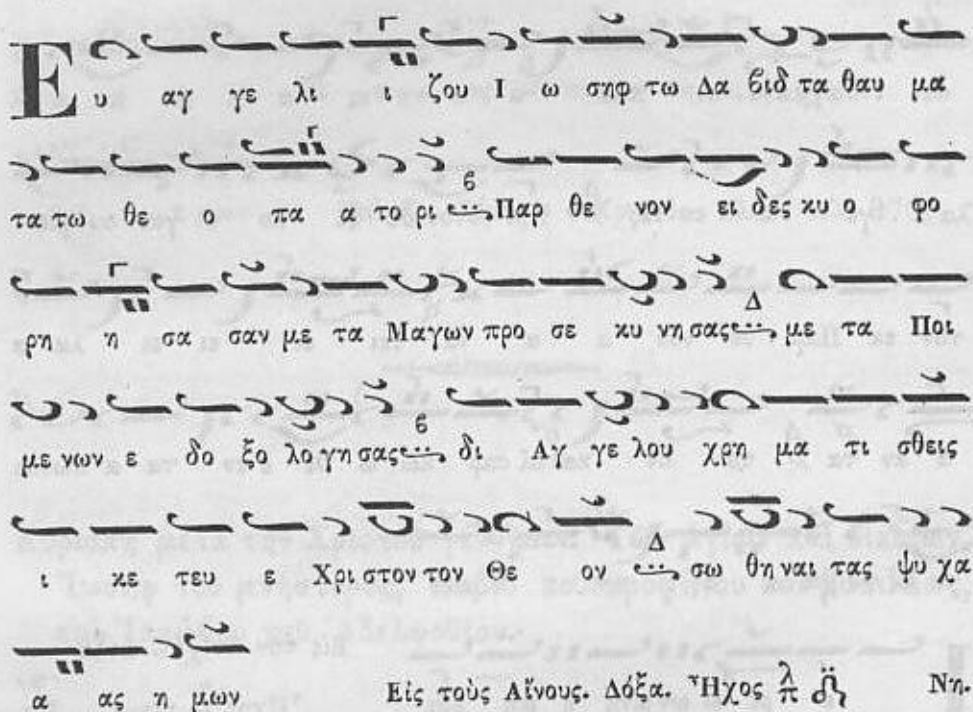 Ευ αγ γε λι ι ζου Ι ω σηφ τω Δα βιδ τα θαυ μα
τα τω θε ο πα α το ρι Παρ θε νον ει δες κυ ο φο
ρη η σα σαν με τα Μαγων προ σε κυ νη σας με τα Ποι
με νων ε δο ξο λο γη σας δι Αγ γε λου χρη μα τι σθεις
ι κε τευ ε Χρι στον τον Θε ον σω θη ναι τας ψυ χα
α ας η μων Εἰς τοὺς Αἴνους. Δόξα. Ἦχος λ π Νη.